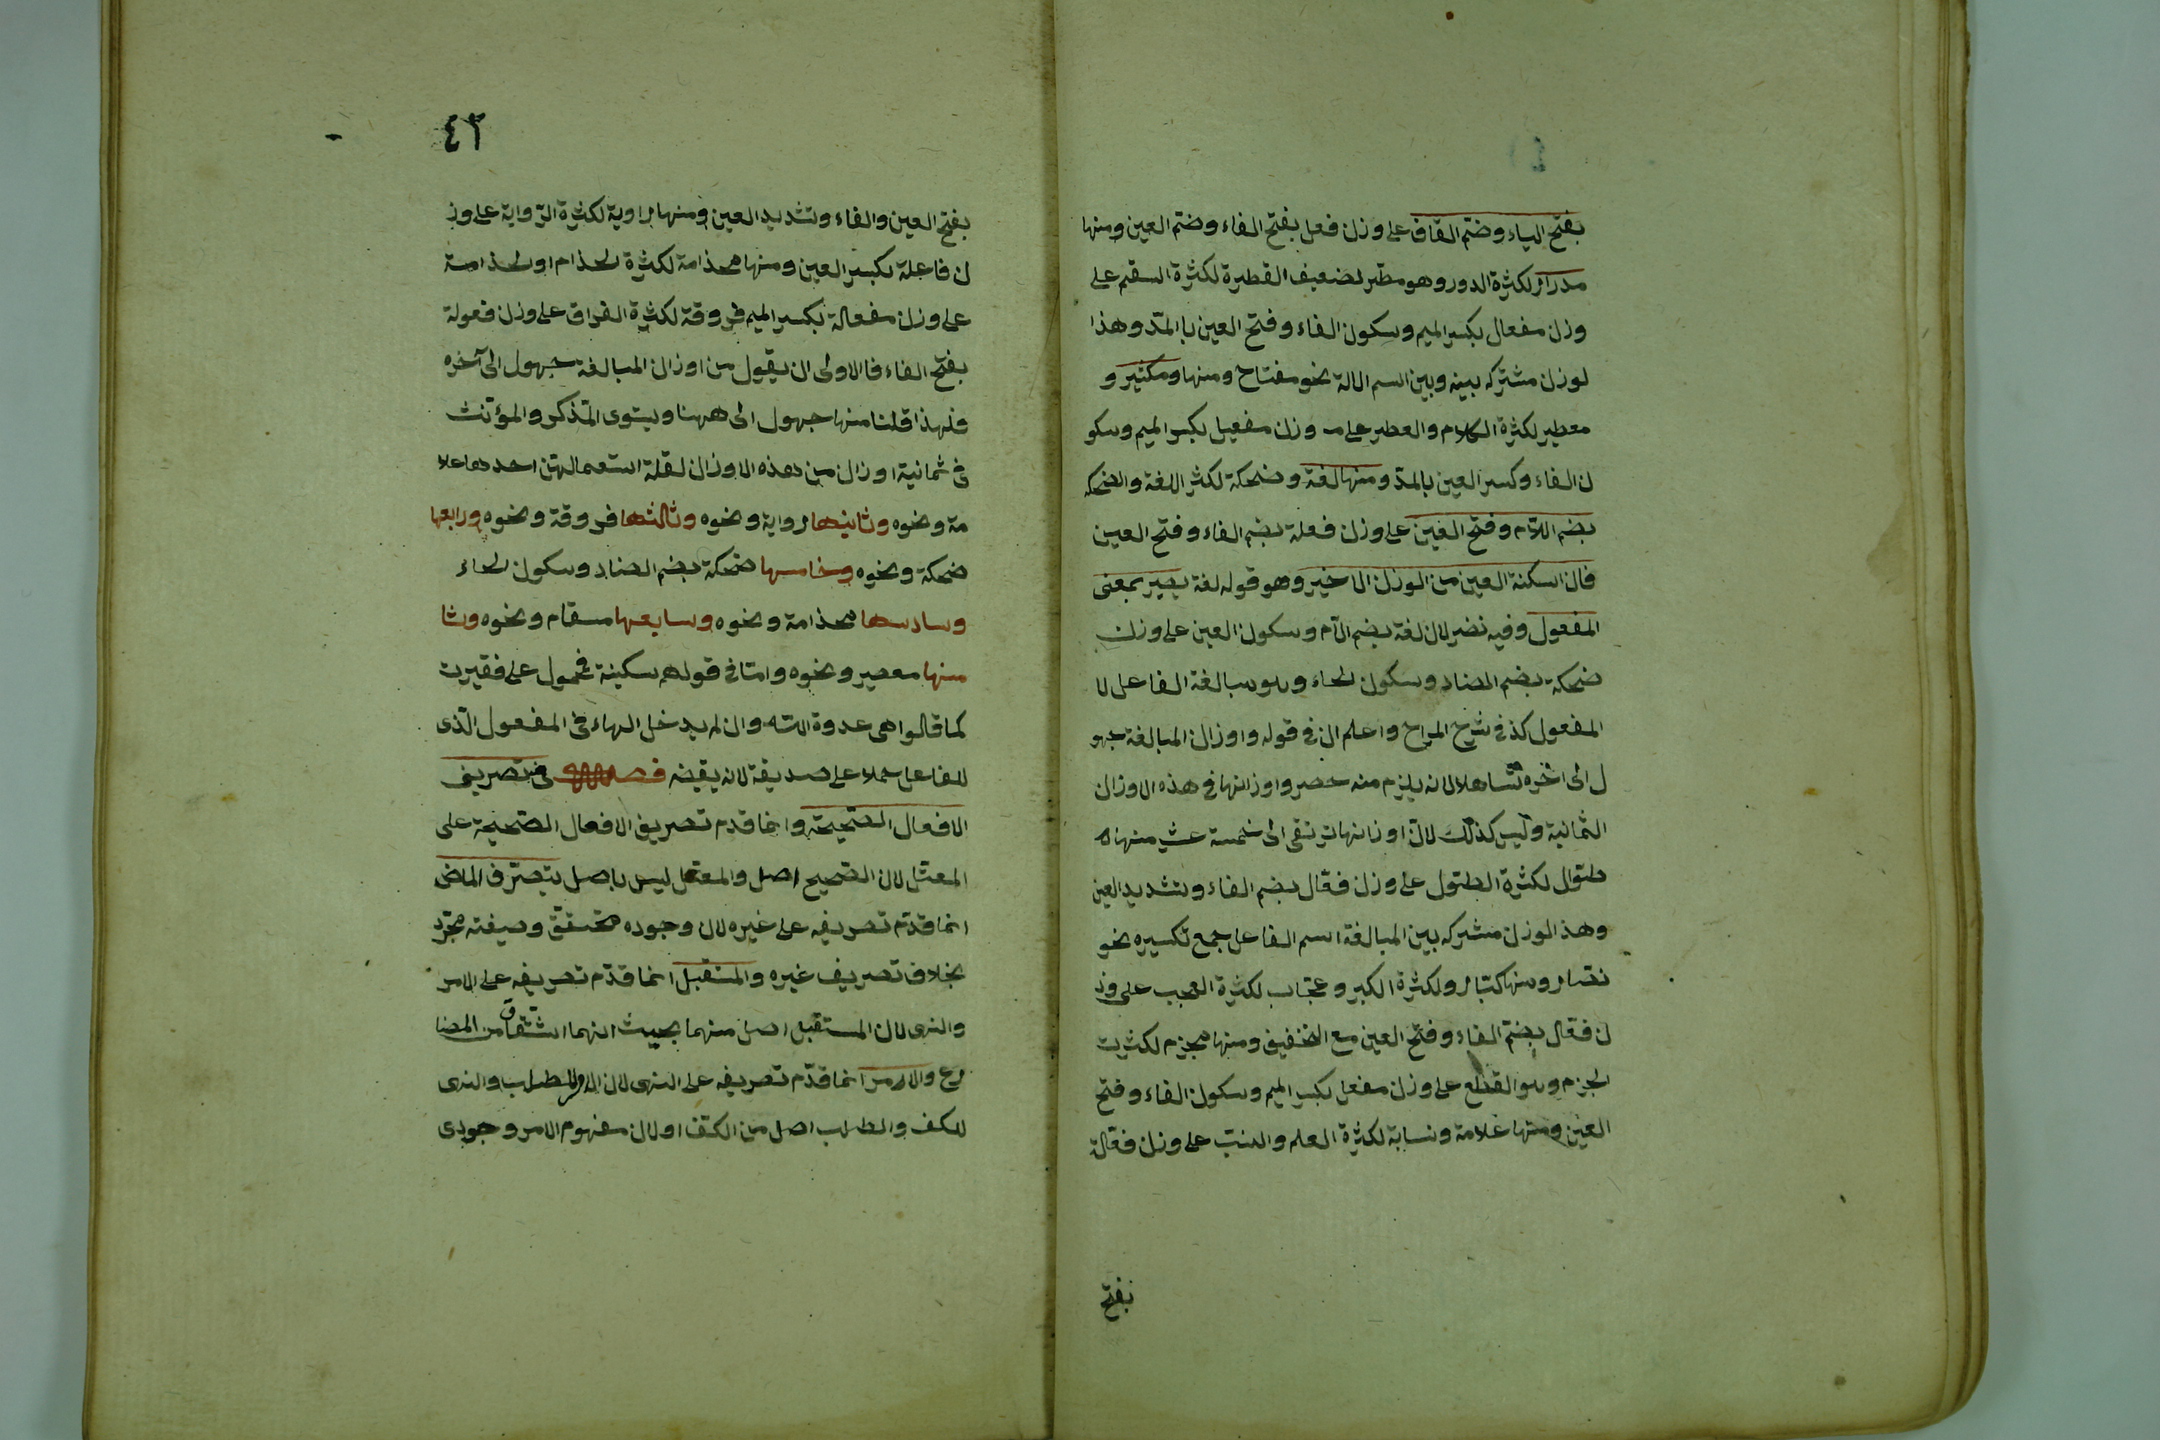 بفتح الياء وضتم القاف على وزن فعل بفتح الفاء وضتم العين ومنها
مدرار لكثرة الدور وهو مطر لضعيف القطرة لكثرة السقم على
وزن مفعال بكسر الميم وسكون الفاء وفتح العين باالمد وهذا
لوزن مشتركه بينه وبين اسم الالة نحو مفتاح ومنها ومكثير و
معطير لكثرة الكلام والعطر على وزن مفعيل بكسر الميم وسكو
ن الفاء وكسر العين بالمد ومنها لغة وضحكة لكثر اللغة والضحكه
بضم اللام وفتح الغين على وزن فعلة بضم الفاء وفتح العين
فان اسكنة العين من الوزن الاخير وهو قوله لغة يصير بمعنى
المفعول وفيه نضر لان لغة بضم الآم وسكون العين على وزن
ضحكة بضم الضاد وسكون الحاء وهو مبالغة الفاعل لا
المفعول كذ في شرح المراح واعلم ان في قوله واوزان المبالغة جهو
ل الى اخره تساهلا لانه يلزم منه حصر واوزانها في هذه الاوزان
الثمانية وليس كذلك لان اوزانهات تقى الى خمسة عشر منها
طوّال لكثرة الطول على وزن فعّال بضم الفاء وتشديد العين
وهذ الوزن مشتركه بين المبالغة اسم الفاعل جمع تكسيره نحو
نصار ومنها كبّار ولكثرة الكبر وعجّاب لكثرة العجب على وز
ن فعّال بضتم الفاء وفتح العين مع التخفيف ومنها مجزم لكثرت
الجزم وهو القطع على وزن مفعل بكسر الميم وسكون الفاء وفتح
العين ومنها علامة ونسابة لكثرة العلم والنسب على وزن فعّالة
بفتح
٤٣
بفتح العين والفاء وتشديد العين ومنها راوية لكثرة الرّواية على وز
ن فاعلة بكسر العين ومنها مجذامة لكثرة الجذام او الجذامة
على وزن مفعالة بكسر الميم فروقة لكثرة الفراق على وزن فعولة
بفتح الفاء فالاولى ان يقول من اوزان المبالغة جهول الى آخره
فلهذا قلنا منها جهول الى ههنا ويستوى المّذكر والمؤنّث
في ثمانية اوزان من هذه الاوزان لقلة استعمالهن احدهما علا
مة ونحوه وثانيها رواية ونحوه وثالثها فروقة ونحوه ورابعها
ضحكة ونحوه وخامسها ضحكة بضم الضاد وسكون الحاء
وسادسها مجذامة ونحوه وسابعها مسقام ونحوه وثا
منها معصير ونحوه وامّا في قولهم سكينة فمحمول على فقيرت
كما قالوا هي عدوة الله وان لم يدخل الهاء في المفعول الّذى
للفاعل حملا على صديقة لانه يقيضه فصل في تصريف
الافعال الصّحيحة وانما قدم تصريف الافعال الصّحيحة على
المعتل لان الصّحيح اصل والمعتل ليس باصل يتصرّف الماضى
انما قدّم تصريفه على غيره لان وجوده متحقق وصيغته مجرّد
بخلاف تصريف غيره والمستقبل انما قدّم تصريفه على الامر
والنهى لان المستقبل اصل منهما بحيث انهما اشتقاق من المضا
رع والامر انما قدّم تصريفه على النهى لان الامر للطلب والنهى
للكف والطلب اصل من الكفّ او لان مفهوم الامر وجودى